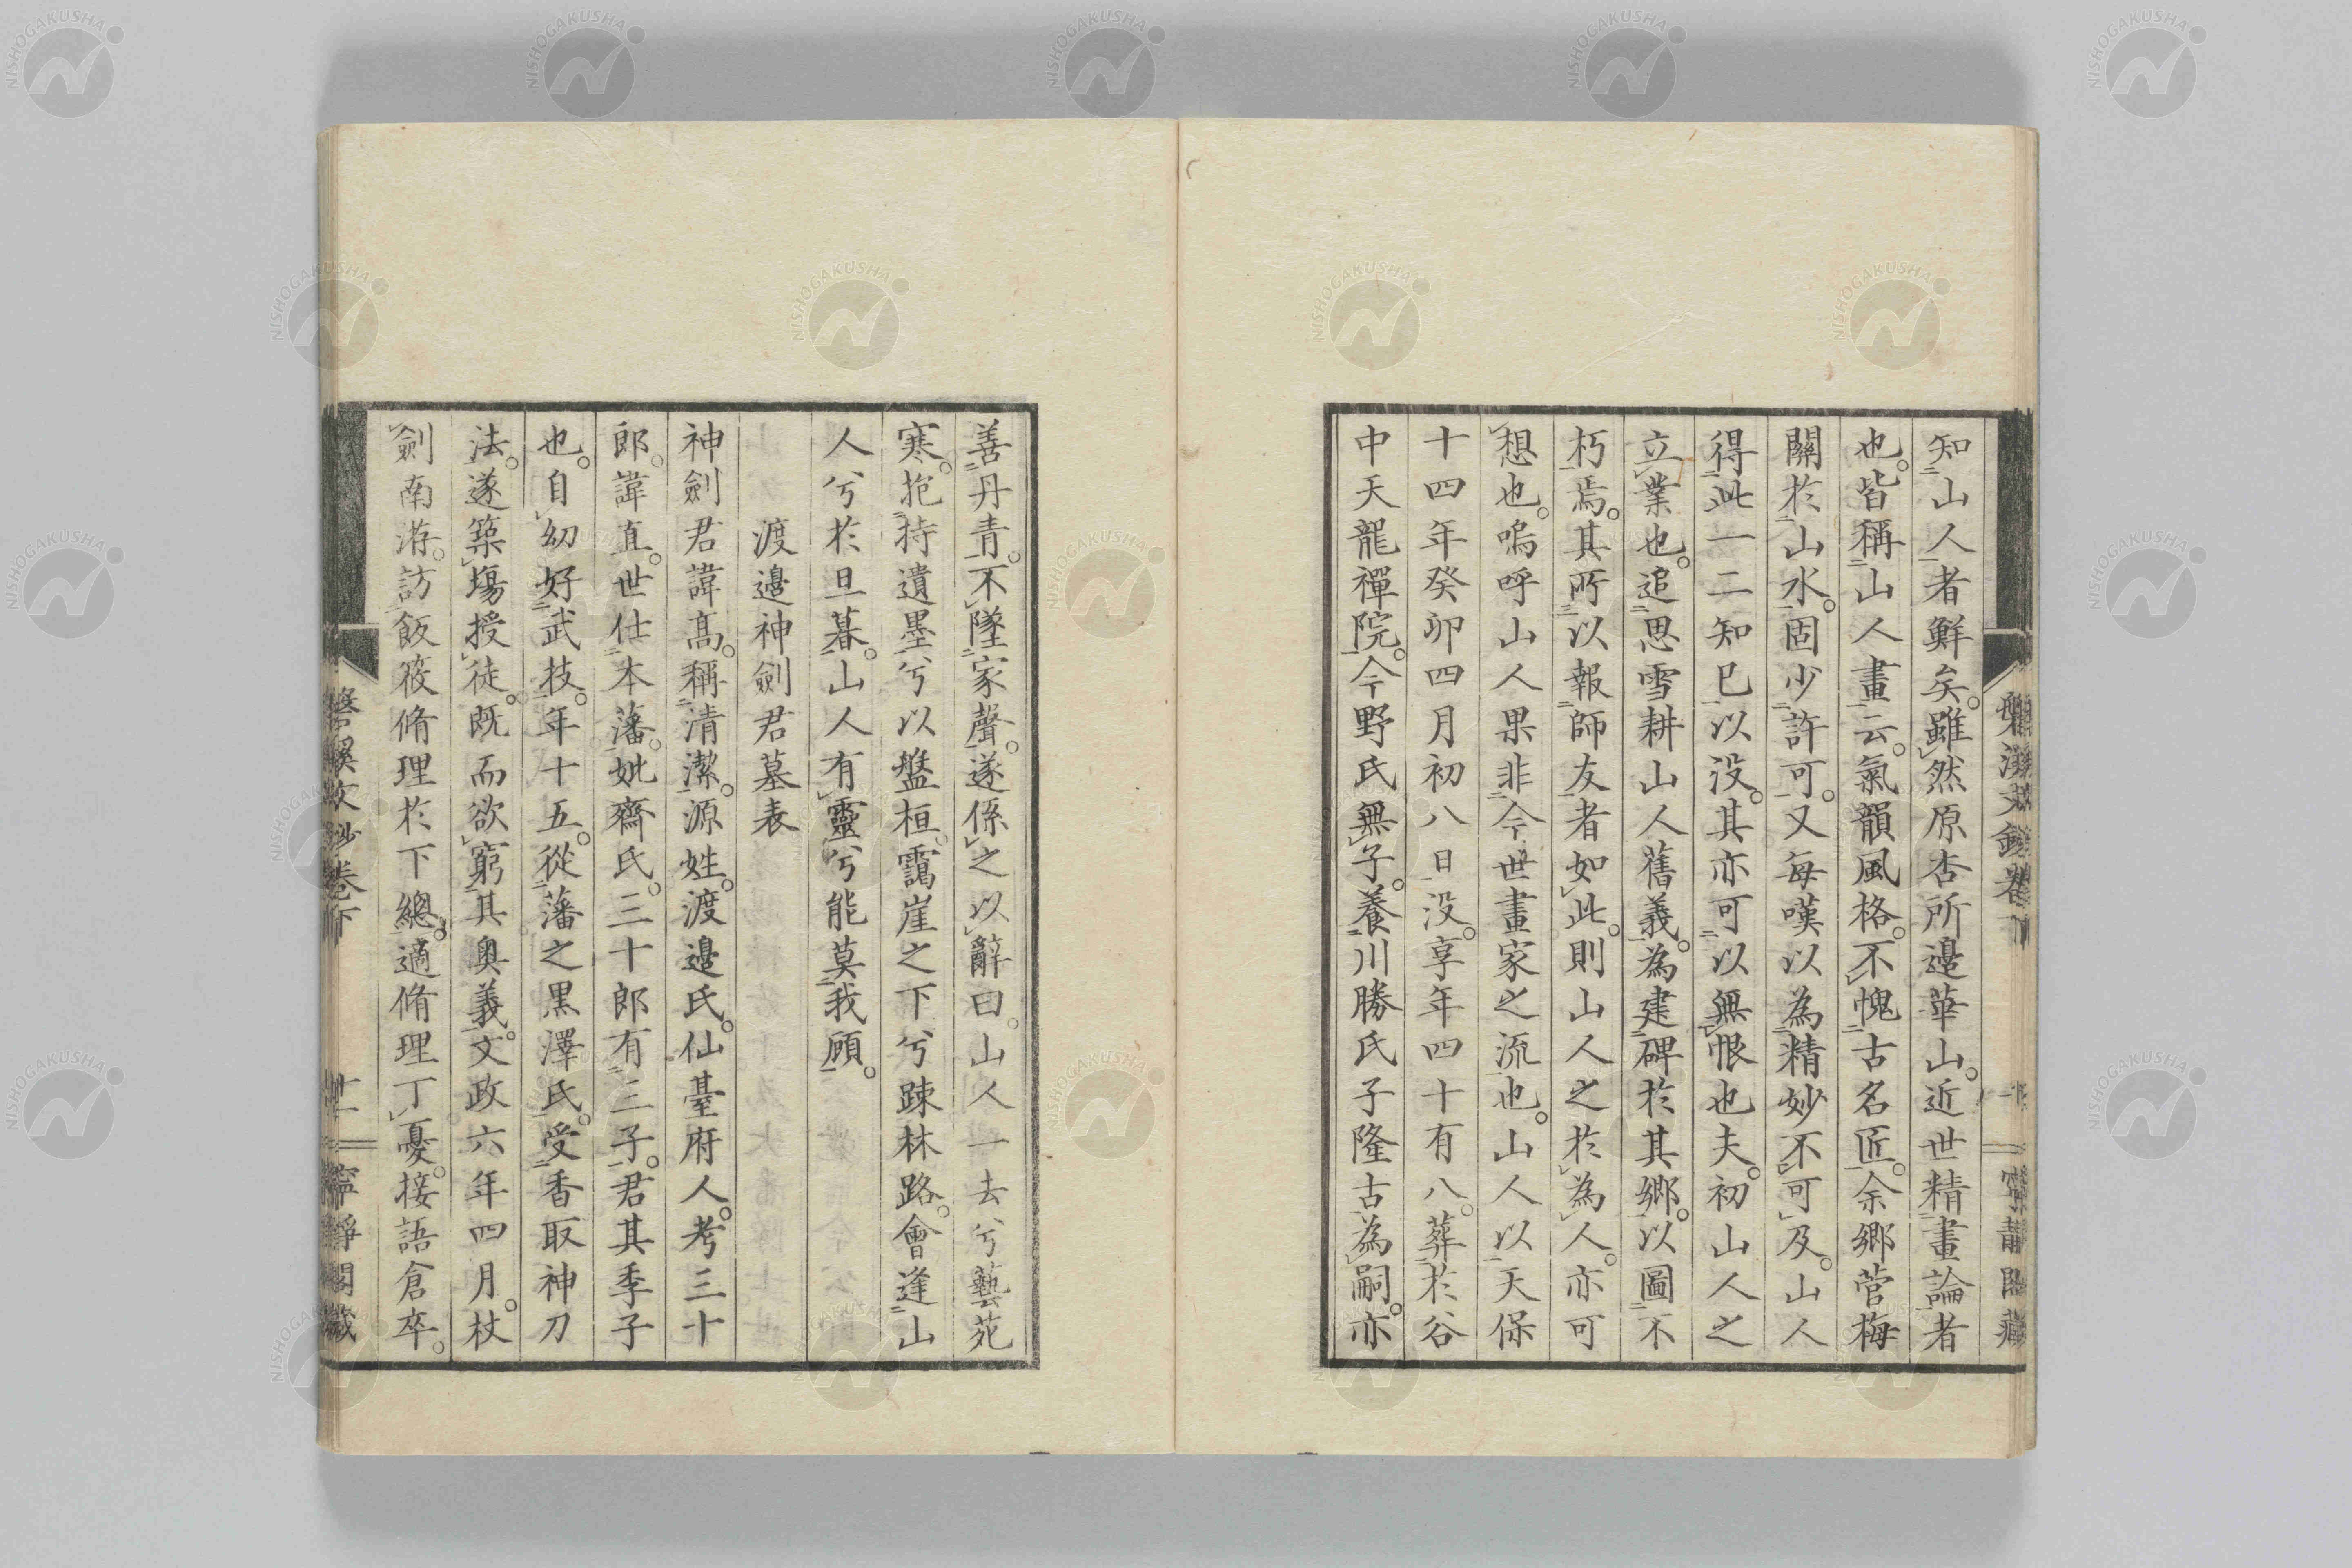 知二山人者鮮矣。雖然原杏所邉華山。近世精畫論者
也。皆稱二山人畫一云。氣韻風格。不愧二古名匠一。余郷菅梅
關於二山水一。固少二許可一。又每嘆以為二精妙不可及。山人
得二此一二知已一以没。其亦可二以無恨也夫。初山人之
立業也。追二思雪耕山人舊義一。為建二碑於其郷一。以圖二不
朽一焉。其所三以報二師友一者如此。則山人之於為人。亦可
想也。嗚呼山人果非二今世畫家之流一也。山人以二天保
十四年癸卯四月初八日一没。享年四十有八。葬二於谷
中天龍禪院一。今野氏無子。養二川勝氏子隆古一為嗣。亦
善二丹青一。不墜二家聲一。遂係之以辭曰。山人一去兮藝苑
寒。抱二持遺墨一兮以盤桓。靄崖之下兮疎林路。會逢二山
人一兮於旦暮。山人有靈兮能莫二我顧一。
渡邉神劍君墓表
神劍君諱高。稱二清潔一。源姓。渡邉氏。仙臺府人。考三十
郎。諱直。世仕二本藩一。妣齊氏。三十郎有二三子一。君其季子
也。自幼好二武技一。年十五。從二藩之黒澤氏一。受二香取神刀
法一。遂築塲授徒。既而欲窮二其奥義一。文政六年四月。杖
劍南游。訪二飯筱脩理於下總一。適脩理丁憂。接語倉卒。
盤溪文鈔卷下
十一
寧靜閣藏